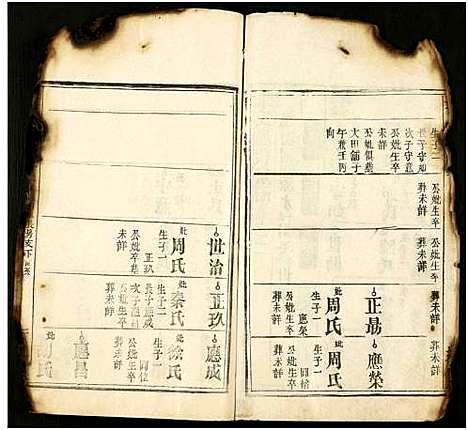 生子二
長子守
次子守意
公妣生卒
未詳
公妣俱葬
大田舖子
午兼壬丙
向
公妣生卒
葬未詳
公妣生卒
葬未詳
正勗
妣周氏
生子一
應榮
公妣生卒
葬未詳
應榮
妣周氏
生子一
公妣生卒
葬未詳
世治
妣周氏
生子一
正玖
公妣生卒葬
未詳
正玖
妣秦氏
生子二
長子應成
次子應昌
公妣生卒
葬未詳
應成
妣徐氏
生子一
公妣生卒
葬未詳
應昌
氏